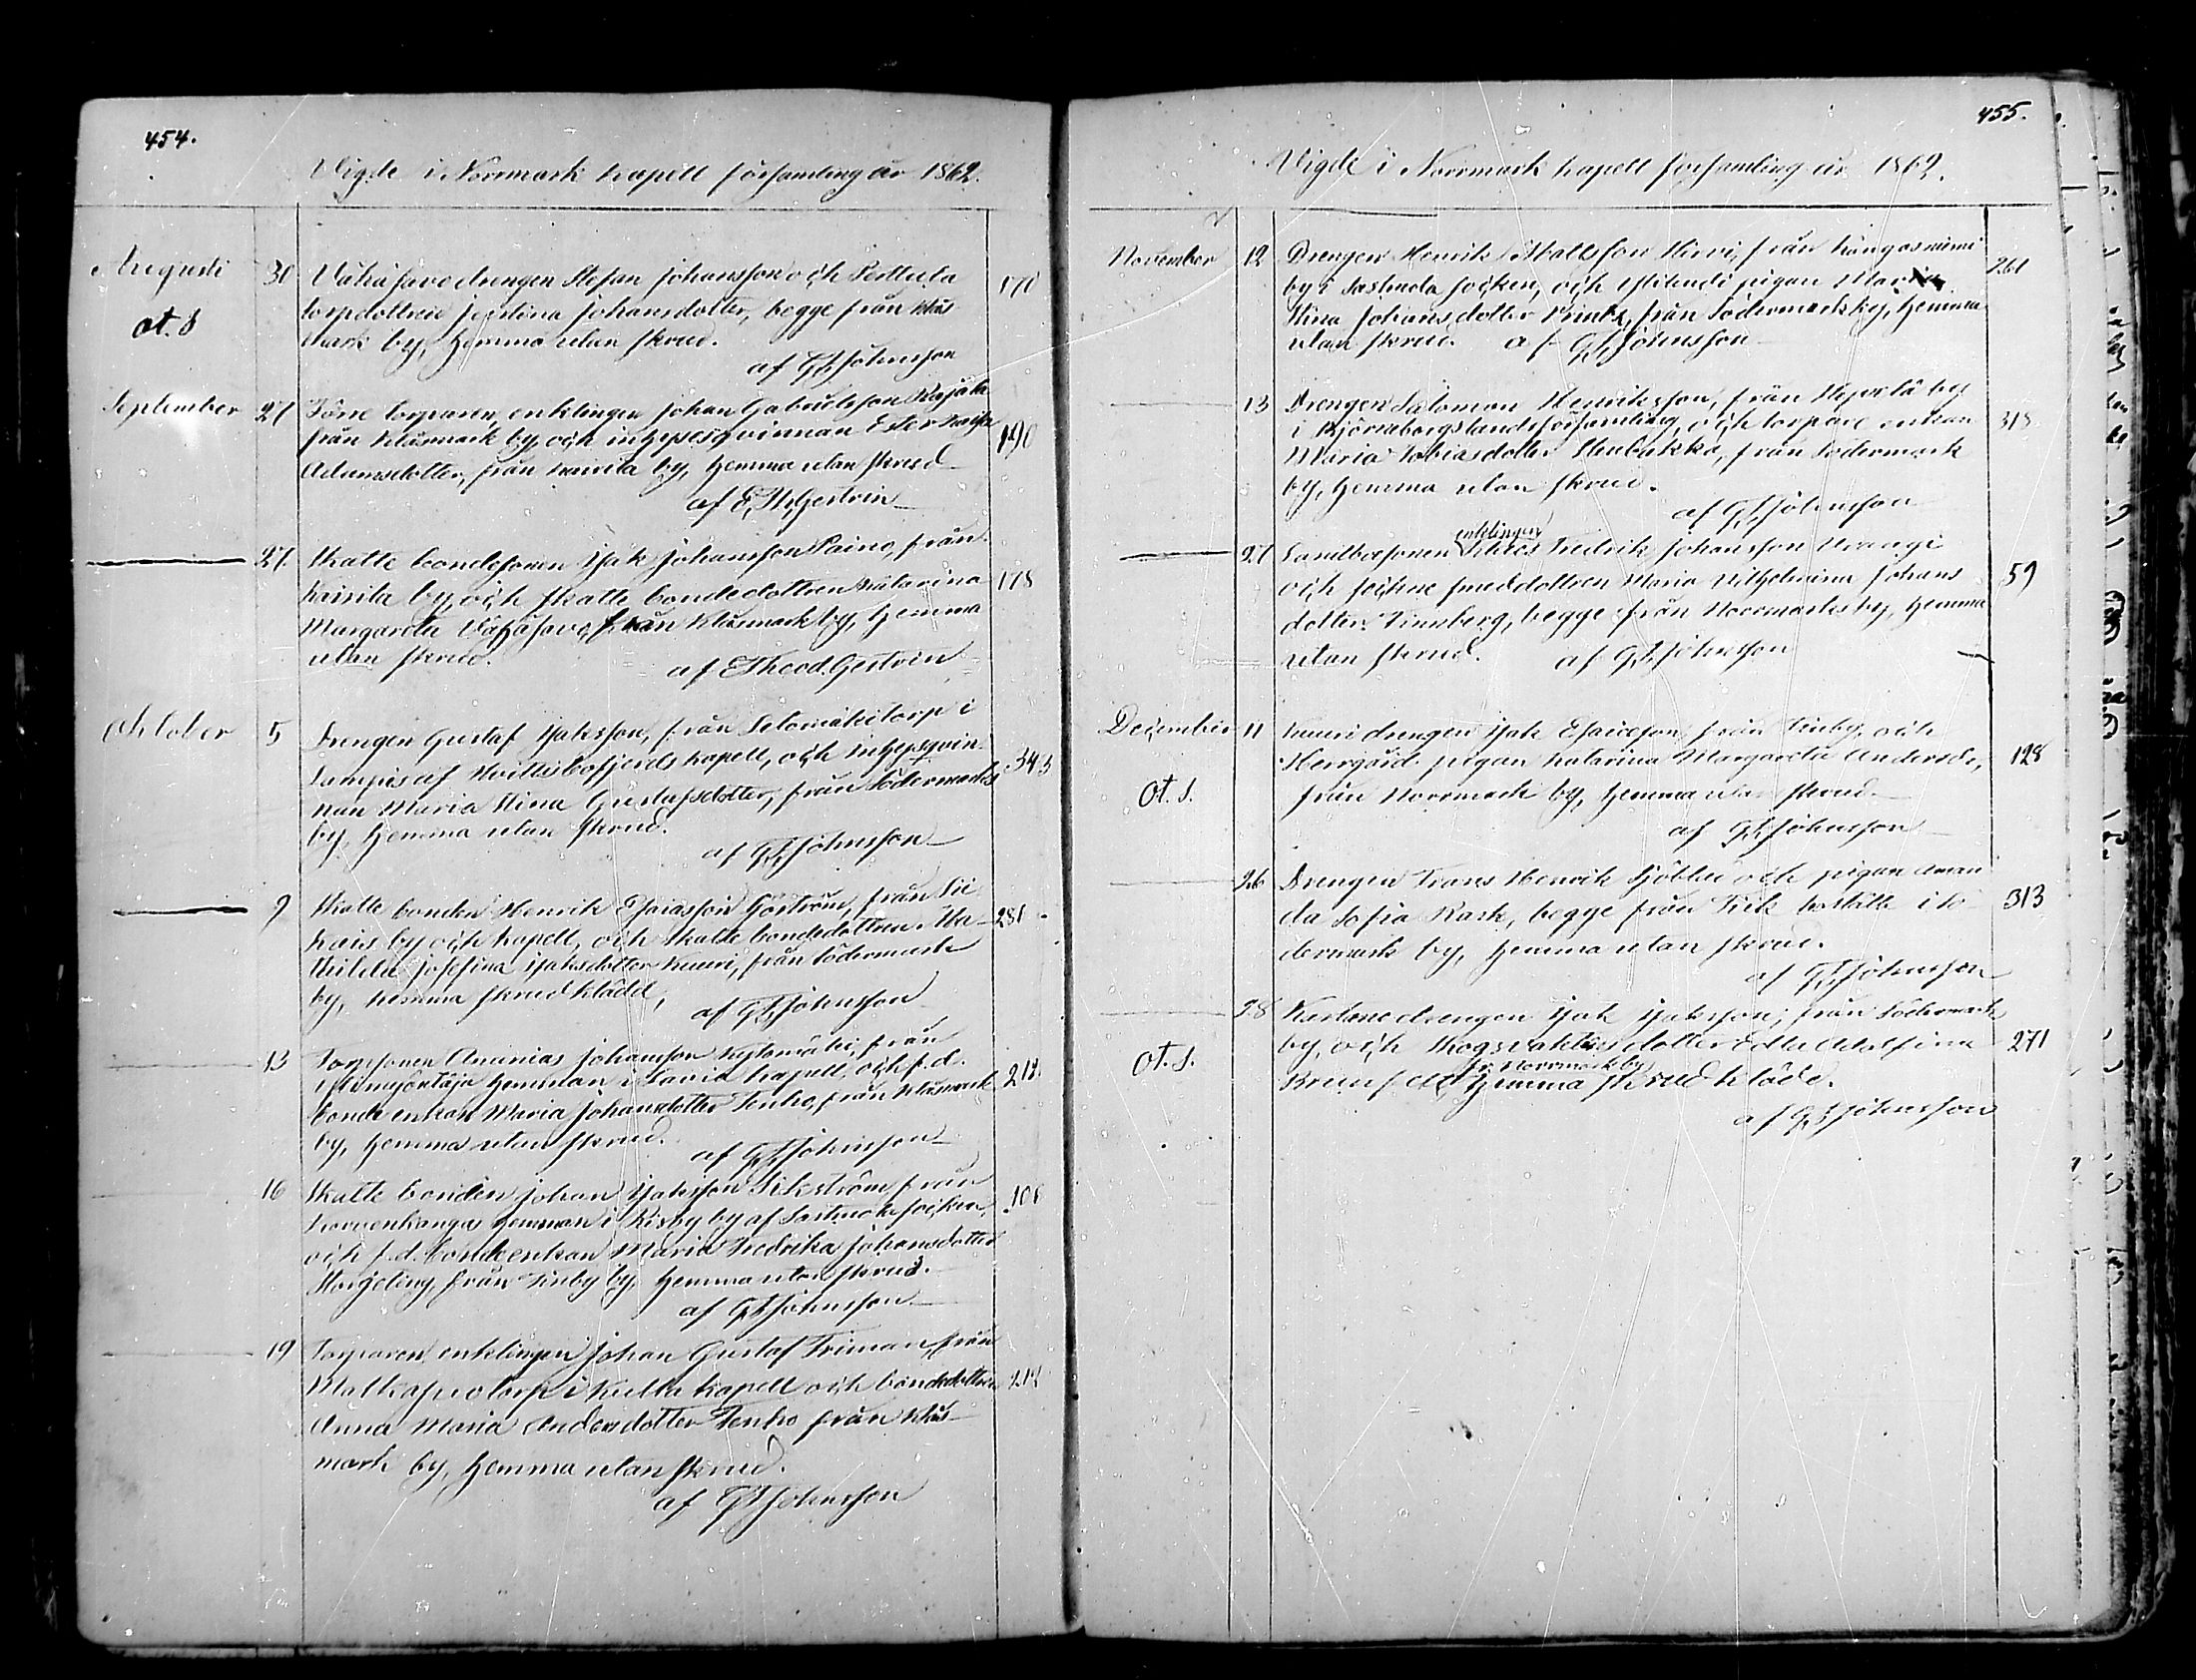 454.
Vigde i Norrmark kapell församling år 1862.
Augusti 30 Vähäsavo drengen Stefan Johansson och Perttula 170
ot. s torpdottren Justina Johansdotter, begge från Klås-
mark by, hemma utan skrud.
af G L Johnsson
September 27 Törre torparen, enklingen Johan Gabrielsson Rajala
från Klåsmark by, och inhysesqvinnan Ester Kaisa 190
Adamsdotter, från Kairila by, hemma utan skrud
af E. Th. Gestrin
27 Skatte bondesonen Isak Johansson Paino, från
Kairila by, och skatte bondedottren Katarina 178
Margareta Vähäsavo, från Klåsmark by, hemma
utan skrud.
af E Theod. Gestrin
October 5 Drengen Gustaf Isaksson, från Salomäki torp i
Lampis af Hvittisbofjerds kapell, och inhysqvin- 343
nan Maria Stina Gustafsdotter, från Södermarks
by, hemma utan skrud.
af G L Johnsson
9 Skatte bonden Henrik Esaiasson Göström, från Sii-
kais by och kapell, och skatte bondedottren Ma- 281
thilda Josefina Isaksdotter Kuuri, från Södermark
by, hemma skrudklädd,
af G L Johnsson
13 Torpsonen Ananias Johansson Kytömäki, från
hemman i Lavia kapell, och f.d. 212
bonde enkan Maria Johansdotter Tenho, från Klåsmark
by, hemma utan skrud.
af G L Johnsson
16 Skatte bonden Johan Isaksson Sikström från
Korvenkangas hemman i Kisby by af Sastmola socken, 106
och f.d. bonde enkan Maria Fredrika Johansdotter
från Finby by, hemma utan skrud.
af G L Johnsson
19 Torparen, enklingen Johan Gustaf Friman, från
torp i Kulla kapell och bondedottren 212
Anna Maria Andersdotter Tenho från Klås-
mark by, hemma utan skrud.
af G L Johnsson
455.
Vigde i Norrmark kapell församling år 1862.
November 12 Drengen Henrik Mattsson Hirvi, från Kångasniemi
by i Sastmola socken, och Ylilundi pigan Maria 261
Stina Johansdotter Printz, från Södermarks by, hemma
utan skrud. af G L Johnsson
13 Drengen Salomon Henriksson, från Hyvelä by
i Björneborgs landsförsamling, och torpare enkan 315
Maria Tobiasdotter Stenbakka, från Södermark
by, hemma utan skrud.
af G L Johnsson
enklingen
27 Landbosonen Fredrik Johansson
och sockne smeddottren Maria Vilhelmina Johans- 59
dotter Finnberg, begge från Norrmarks by, hemma
utan skrud. af G L Johnsson
December 11 Kuuri drengen Isak Esaiesson från Finby, och
Herrgård pigan Katarina Margareta Andersdr, 128
ot. s. från Norrmark by, hemma utan skrud.
af G L Johnsson
26 Drengen Frans Henrik Sjöblad och pigan Aman-
da Sofia Rask, begge från Kik boställe i Sö- 313
dermark by, hemma utan skrud.
af G L Johnsson
28 drengen Isak Isaksson, från Södermark
ot. s. by, och skogsvaktar dotter Edla Adolfina 271
fr. Norrmark by
hemma skrudklädd.
af G L Johnsson